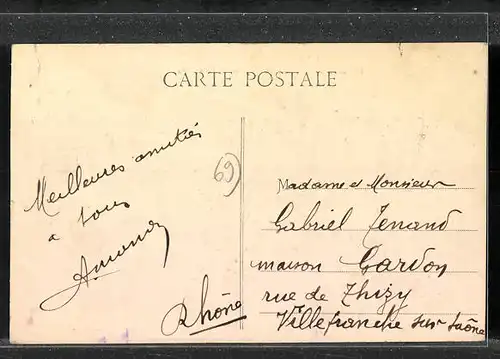 CARTE POSTALE
Meilleures amitiés
à tous
Amand
69
Madame et Monsieur
Gabriel Jenand
maison Gardon
rue de Thizy
Villefranche sur Saône
Rhône